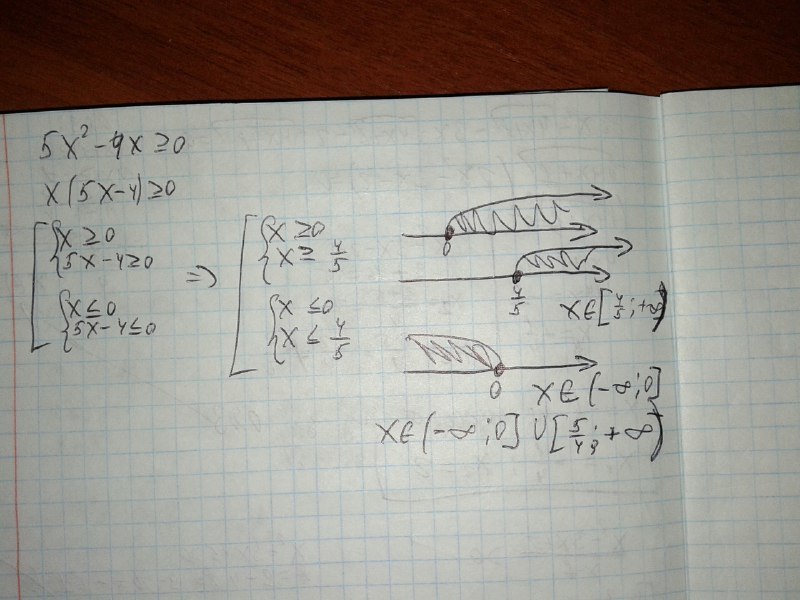 5x² - 4x ≥ 0
x(5x-4) ≥ 0
[ { x ≥ 0
5x-4 ≥ 0
{ x ≤ 0
5x-4 ≤ 0
⇒
[ { x ≥ 0
x ≥ 4/5
{ x ≤ 0
x ≤ 4/5
0
4/5
x∈[4/5; +∞)
0
x∈(-∞; 0]
x∈(-∞; 0] ∪ [5/4; +∞)